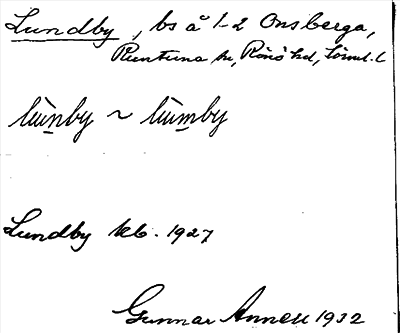 Lundby, bs å 1-2 Onsberga,
Runtuna sn, Rönö hd, Söml. l
lùn̲by ~ lùm̲by
Lundby kb. 1927
Gunnar Annell 1932